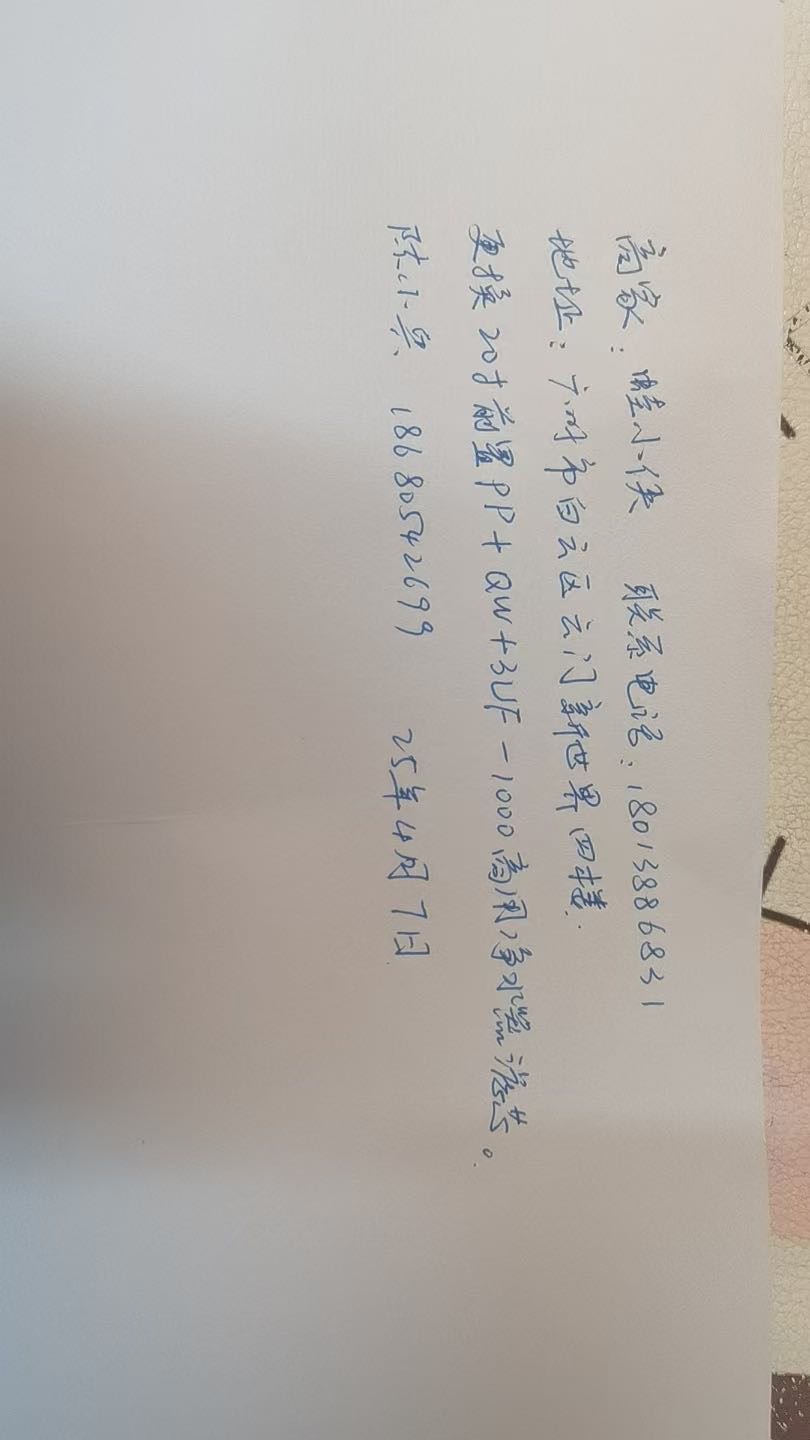 商家：蛙小侠 联系电话：18013886831
地址：广州市白云区云门新世界四楼.
更换20寸前置PP+QW+3UF-1000商用净水器滤芯。
陈小兵 18680542699 25年4月7日.